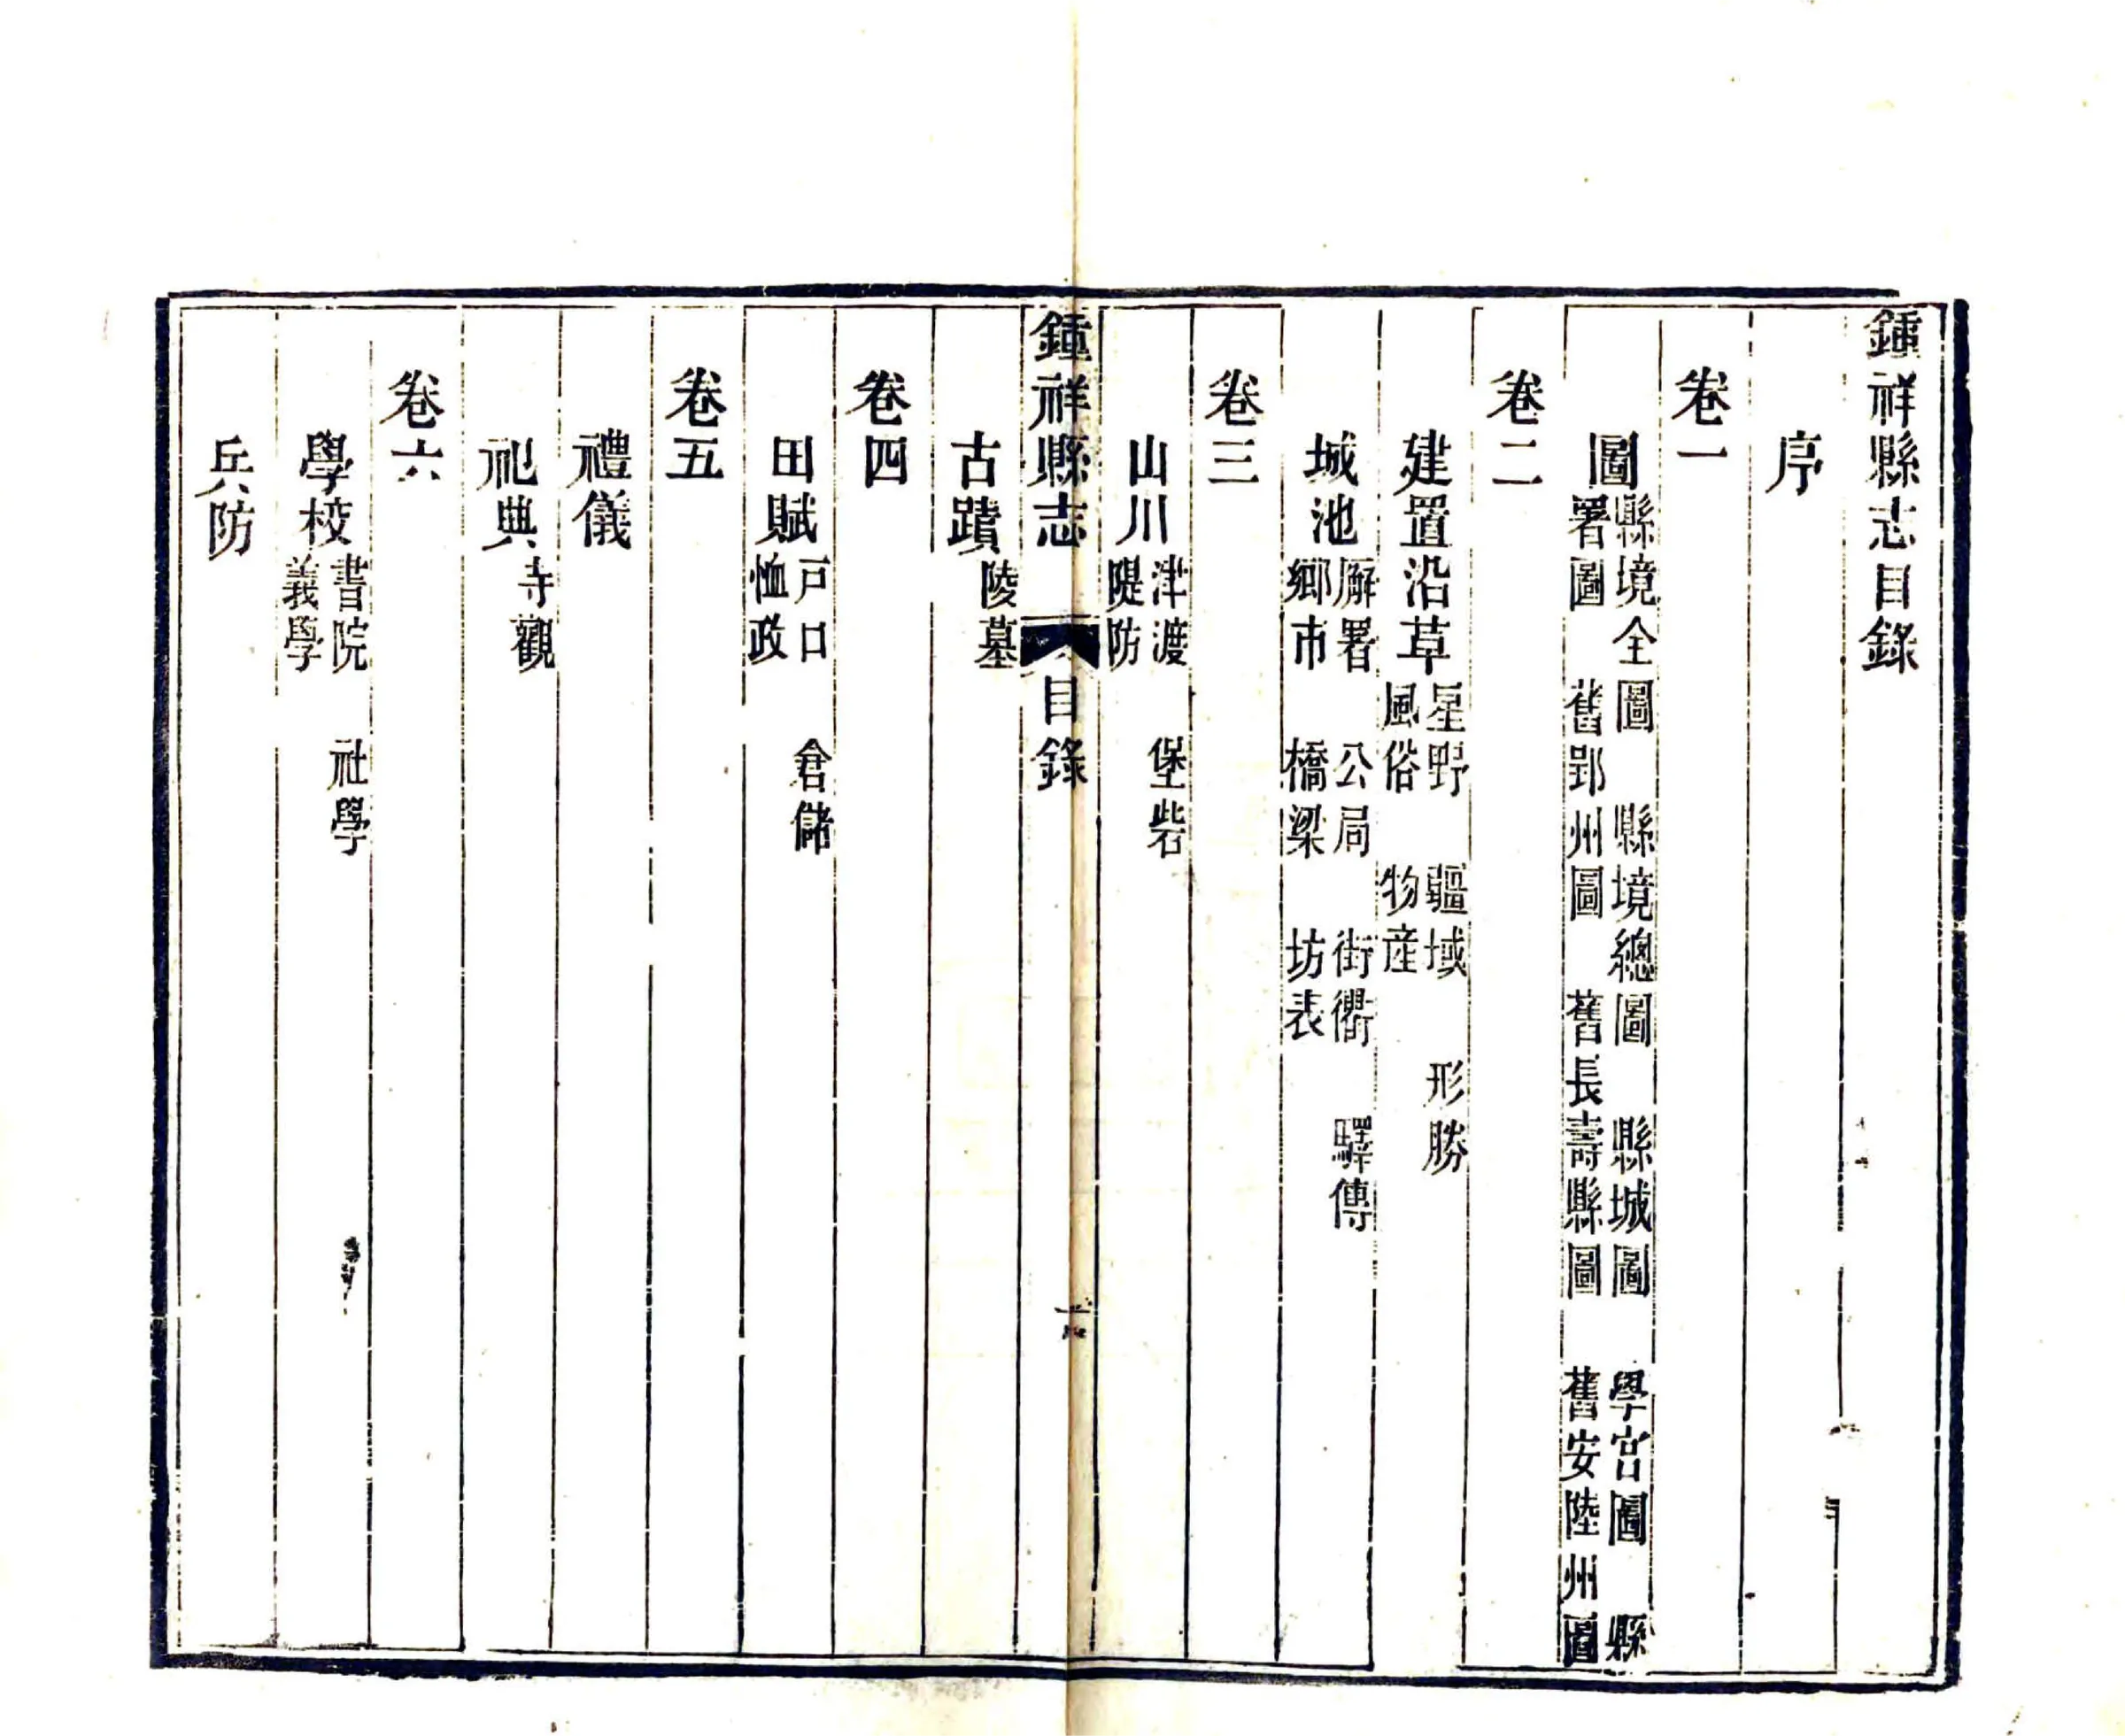 鍾祥縣志目錄
序
卷一
圖縣境全圖 縣境總圖 縣城圖 學宮圖 縣
署圖 舊郢州圖 舊長壽縣圖 舊安陸州圖
卷二
建置沿革星野 疆域 形勝
風俗 物產
城池廨署 公局 街衢 驛傳
鄉市 橋梁 坊表
卷三
山川津渡 堡砦
隄防
鍾祥縣志 目錄 一
古蹟陵墓
卷四
田賦戶口 倉儲
恤政
卷五
禮儀
祀典寺觀
卷六
學校書院 社學
義學
兵防